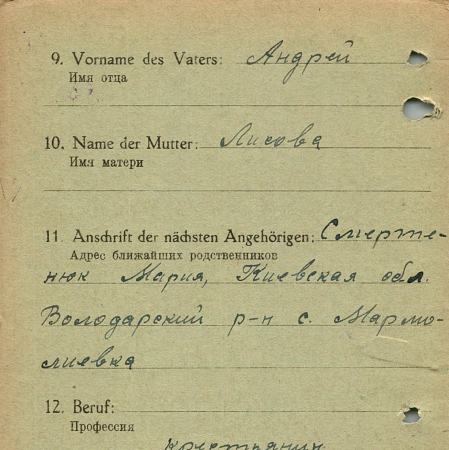 9. Vorname des Vaters: Андрей
Имя отца
10. Name der Mutter: Лисова
Имя матери
11. Anschrift der nächsten Angehörigen: Смерте-
Адрес ближайших родственников
нюк Мария, Киевская обл.
Володарский р-н с. Мармо-
лиевка
12. Beruf:
Профессия
крестьянин